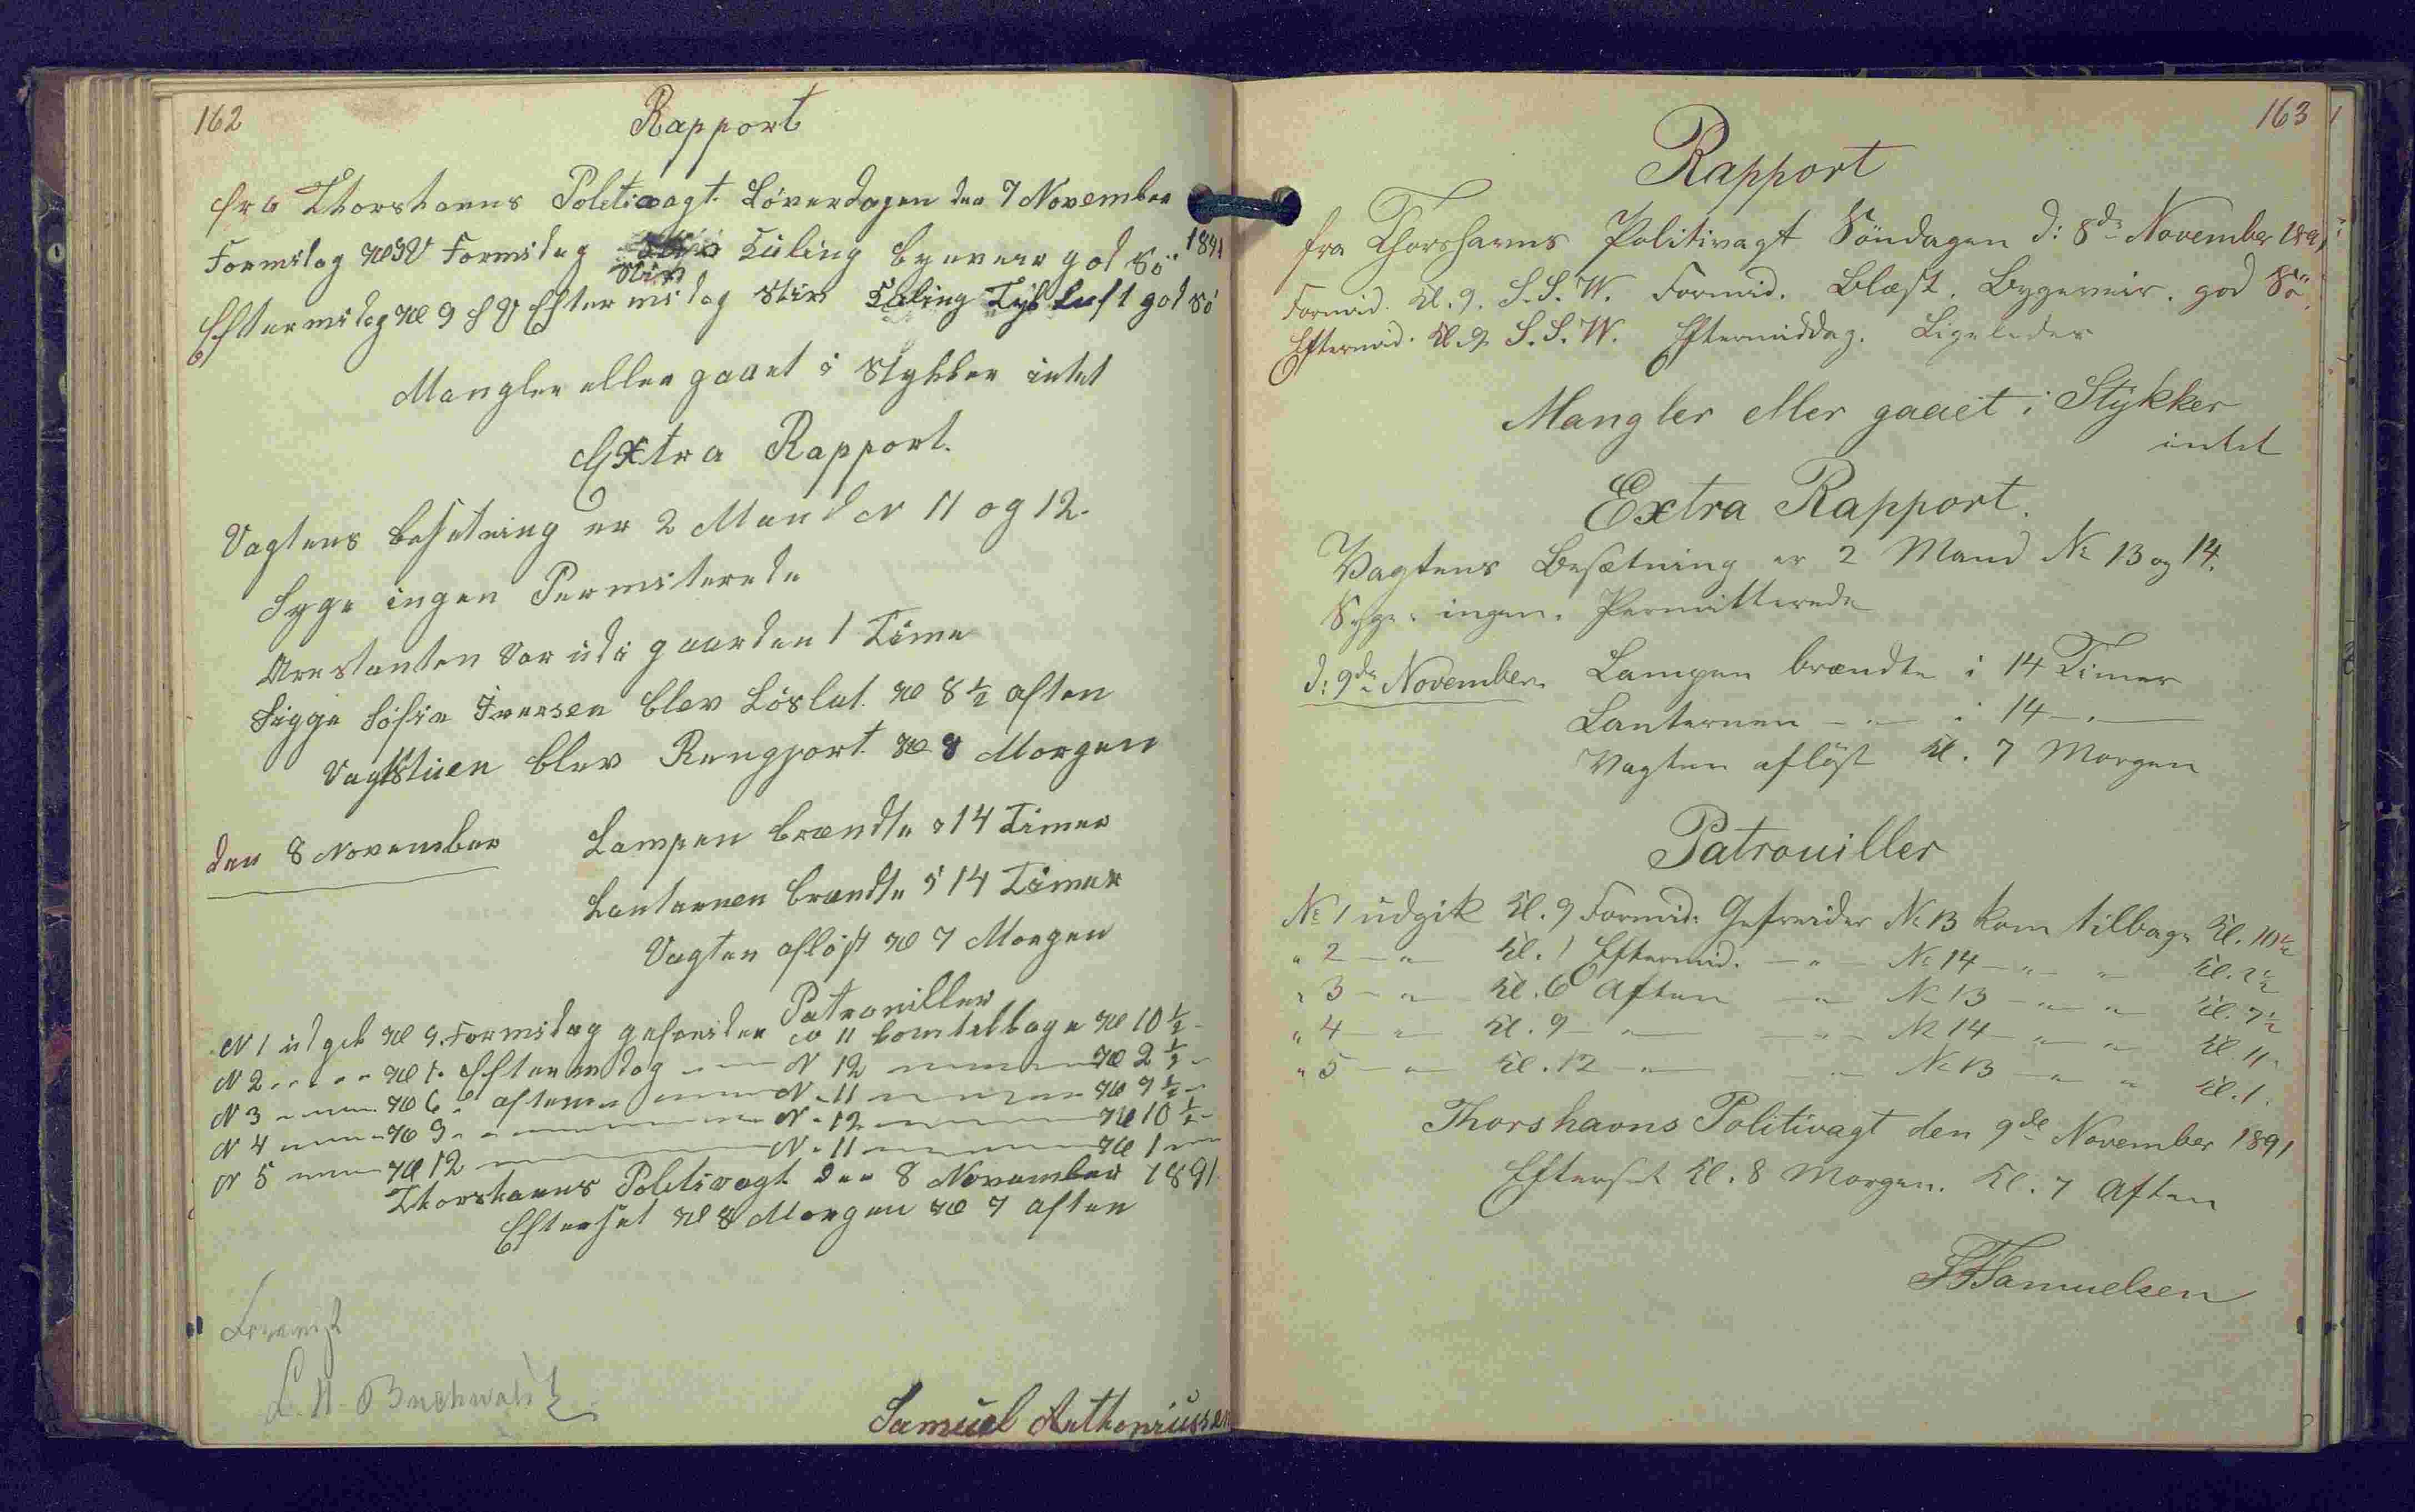 162
Rapport
fra Thorshavns Politivagt Löverdagen den 7 November
1891
Formidag Kl 9 V Formidag Kuling byeveir god Sö
Stiv
Eftermidag Kl 9 S V Eftermidag Stiv Kuling Tyk Luft god Sö
Mangler eller gaaet i Stykker intet
Extra Rapport.
Vagtens besetning er 2 Mand N 11 og 12.
Syge ingen Permiterede
Arrestanten var udi gaarden 1 Time
Sigge Sofie Iversen blev Löslat Kl 8 1/2 aften
Vagtstuen blev Rengjort Kl 8 Morgen
den 8 November
Lampen brændte i 14 Timer
Lanternen brændte i 14 Timer
Vagten aflöst Kl 7 Morgen
Patrouiller
N 1 udgik Kl 9. Formidag gefreider N 11 kom tilbage Kl 10 1/2
N 2 Kl 1. Eftermidag N 12 Kl 2 1/2
N 3 Kl 6 aften N. 11 Kl 7 1/2
N 4 Kl 9 N. 12 Kl 10 1/2
N 5 Kl 12 N. 11 Kl 1
Thorshavns Politivagt den 8 November 1891
Efterset Kl 8 Morgen Kl 7 aften
Forevist
L. H. Buchwaldt
Samuel Anthoniussen
163
Rapport
fra Thorshavns Politivagt Söndagen d: 8de November 1891
Formid. Kl. 9. S.S.W. Formid. Blæst. Bygeveir. god Sö.
Eftermid. Kl. 9 S.S.W. Eftermiddag. Ligeledes
Mangler eller gaaet i Stykker
intet
Extra Rapport.
Vagtens Besætning er 2 Mand No 13 og 14.
Syge. ingen. Permitterede
d: 9de November. Lampen brændte i 14 Timer
Lanternen - " - i 14 - " -
Vagten aflöst Kl. 7 Morgen
Patrouiller
No 1 udgik Kl. 9 Formid: Gefreider No 13 kom tilbage Kl. 10 1/2
" 2 - " - Kl. 1 Eftermid. - " - No 14 - " - " Kl. 2 1/2
" 3 - " - Kl. 6 Aften - " - No 13 - " - " Kl. 7 1/2
" 4 - " - Kl. 9 - " - - " - No 14 - " - " Kl. 11 "
" 5 - " - Kl. 12 - " - - " - No 13 - " - " Kl. 1 "
Thorshavns Politivagt den 9de November 1891
Efterset Kl. 8 Morgen. Kl. 7 Aften
Samuelsen